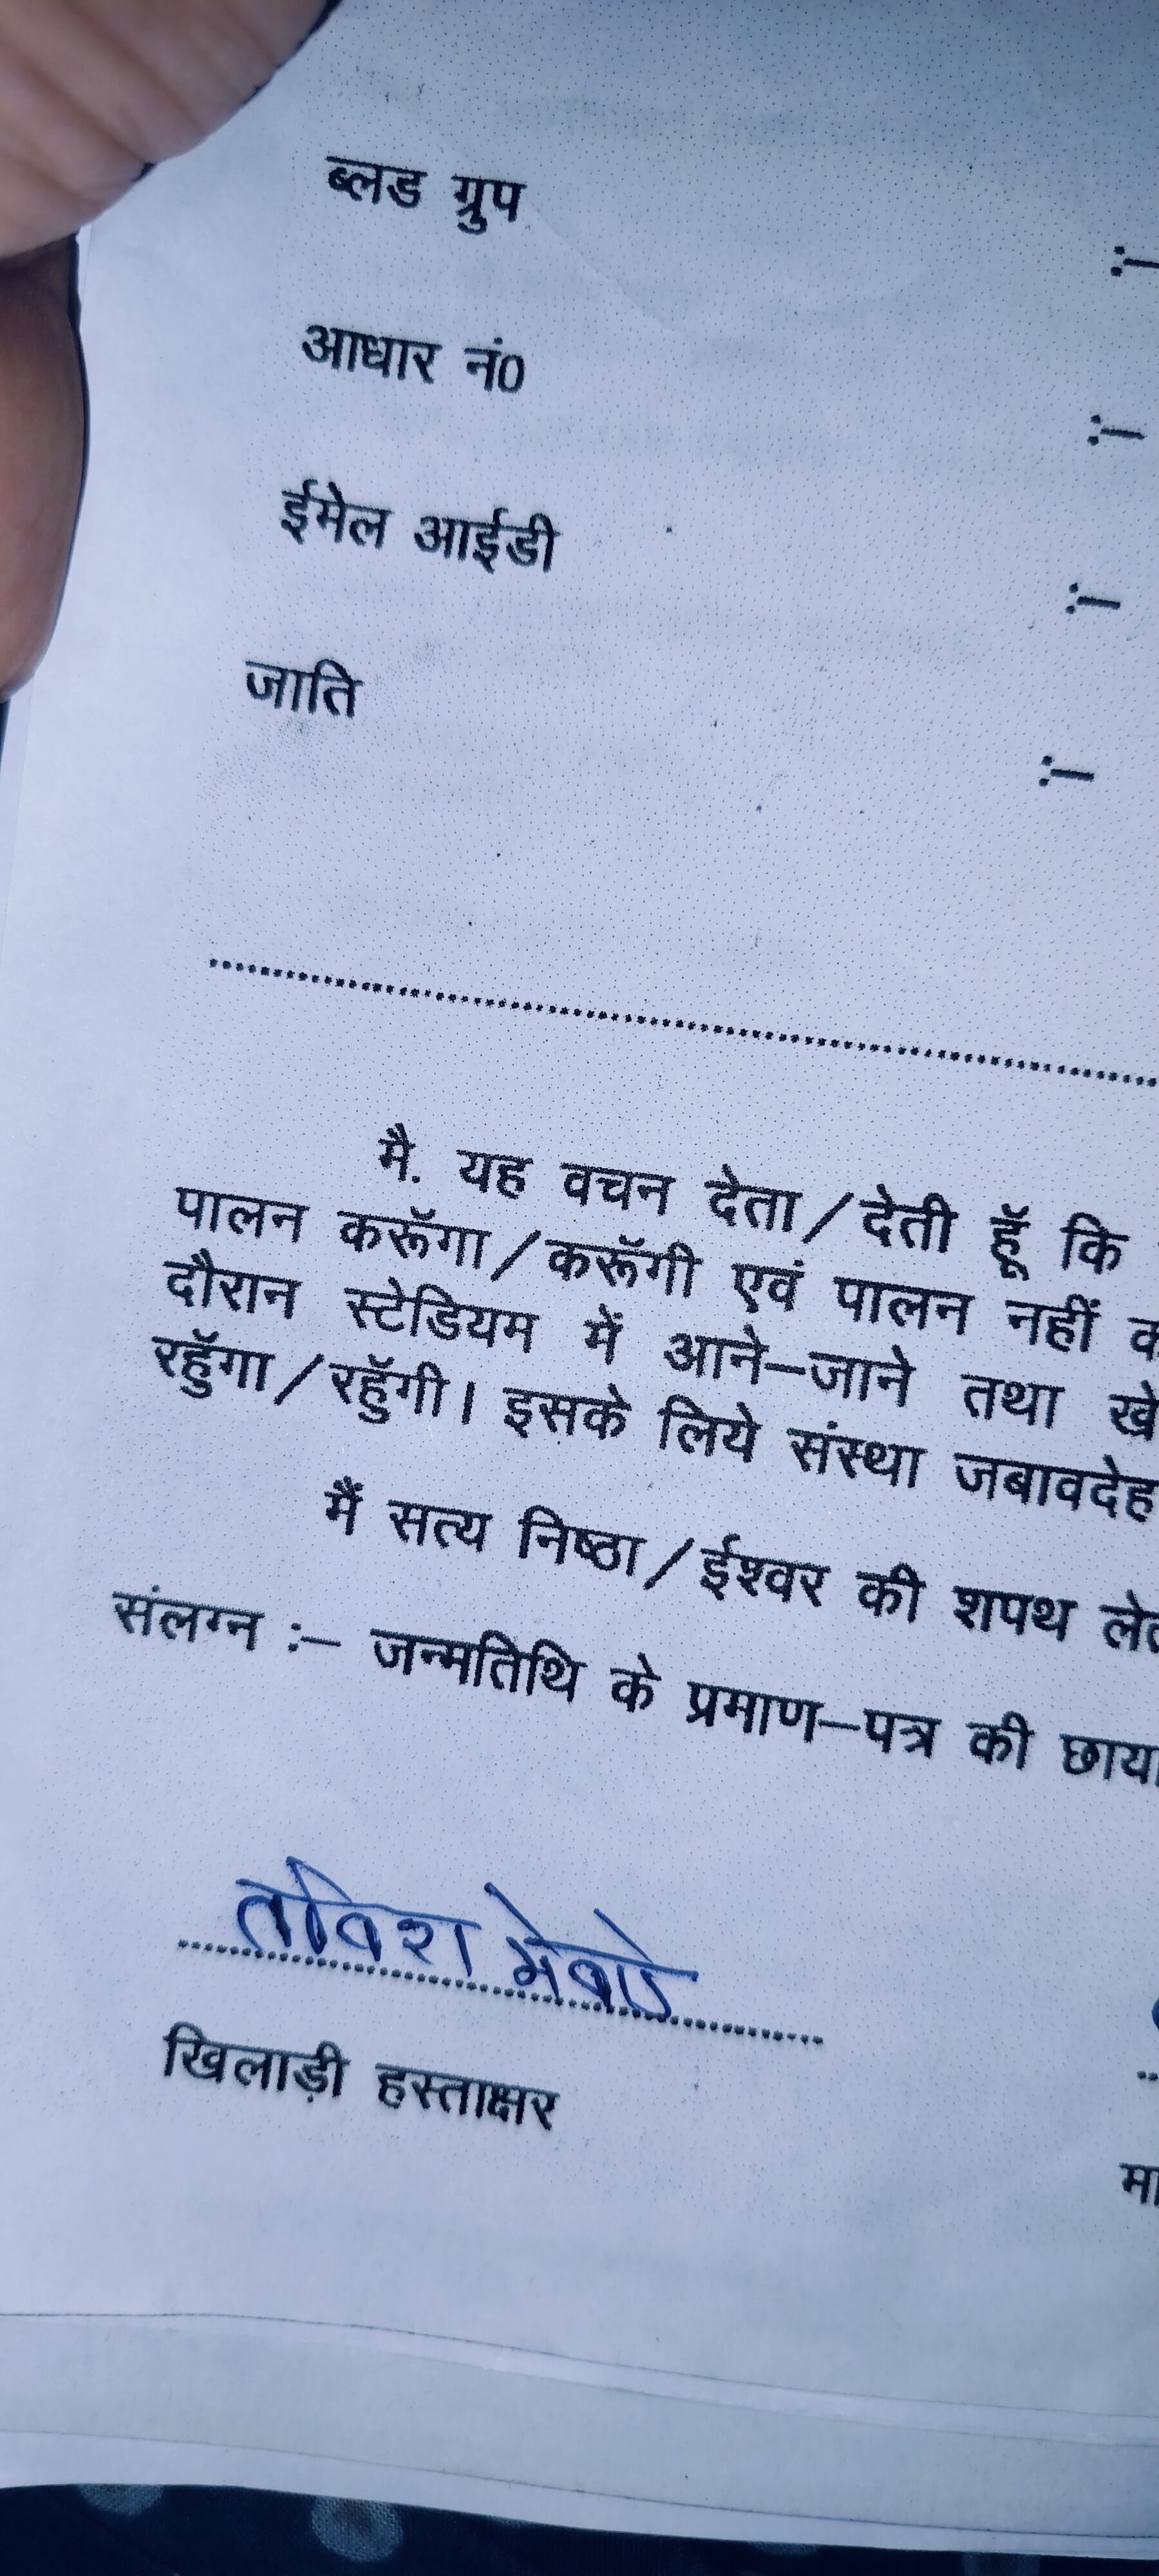 ब्लड ग्रुप :–
आधार नं0 :–
ईमेल आईडी :–
जाति :–
मै. यह वचन देता/देती हूॅ कि
पालन करूॅगा/करूॅगी एवं पालन नहीं
दौरान स्टेडियम में आने–जाने तथा
रहूॅगा/रहूॅगी। इसके लिये संस्था जबावदेह
मैं सत्य निष्ठा/ईश्वर की शपथ
संलग्न :– जन्मतिथि के प्रमाण–पत्र की
खिलाड़ी हस्ताक्षर